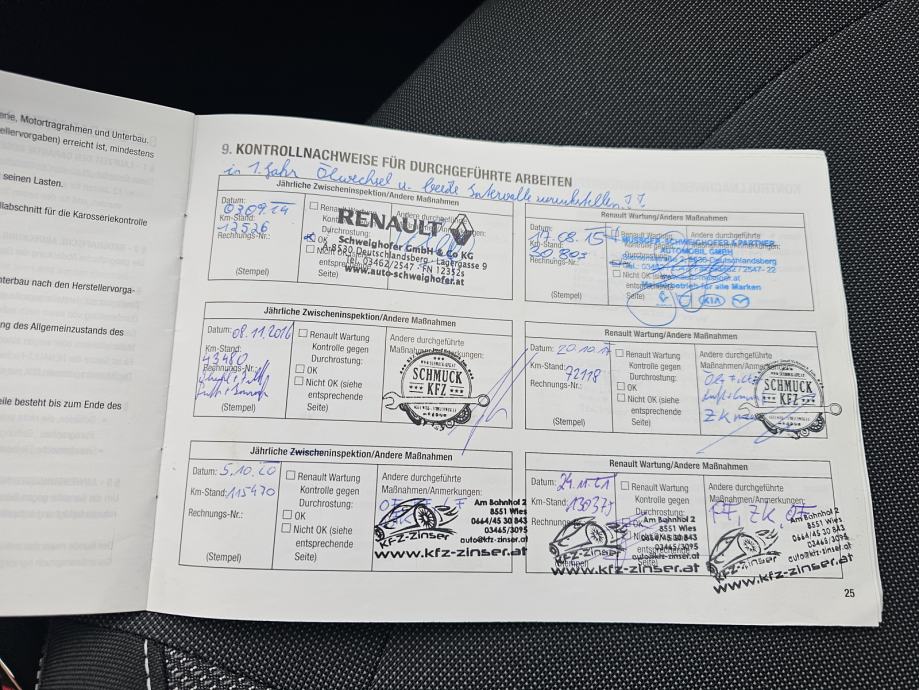 erie, Motortragrahmen und Unterbau.
stellervorgaben) erreicht ist, mindestens
seinen Lasten.
llabschnitt für die Karosseriekontrolle
nterbau nach den Herstellervorga-
ng des Allgemeinzustands des
eile besteht bis zum Ende des
9. KONTROLLNACHWEISE FÜR DURCHGEFÜHRTE ARBEITEN
in 1. Jahr Ölwechsel u. beide Intervalle
Jährliche Zwischeninspektion/Andere Maßnahmen
Datum: 03.09.14
Km-Stand:
12526
Rechnungs-Nr.:
(Stempel)
Renault Wartung
Kontrolle gegen
Durchrostung:
OK
Nicht OK (siehe
entsprechende
Seite)
Andere durchgeführte
RENAULT
Schweighofer GmbH & Co KG
A-8530 Deutschlandsberg - Lagergasse 9
Tel. 03462/2547 - FN 12352s
www.auto-schweighofer.at
Renault Wartung/Andere Maßnahmen
Datum:
17.08.15
Km-Stand:
30803
Rechnungs-Nr.:
(Stempel)
Nicht OK
Seite)
SCHWEIGHOFER & PARTNER
AUTOMOBIL GMBH
8530 Deutschlandsberg
03462/2547-22
Meisterbetrieb für alle Marken
KIA
Jährliche Zwischeninspektion/Andere Maßnahmen
Datum: 08.11.2016
Km-Stand:
43480
Rechnungs-Nr.:
(Stempel)
Renault Wartung
Kontrolle gegen
Durchrostung:
OK
Nicht OK (siehe
entsprechende
Seite)
Andere durchgeführte
Maßnahmen/Anmerkungen:
SCHMUCK
KFZ
Renault Wartung/Andere Maßnahmen
Datum: 20.10.17
Km-Stand: 72118
Rechnungs-Nr.:
(Stempel)
Renault Wartung
Kontrolle gegen
Durchrostung:
OK
Nicht OK (siehe
entsprechende
Seite)
Andere durchgeführte
Maßnahmen/Anmerkungen:
SCHMUCK
KFZ
Jährliche Zwischeninspektion/Andere Maßnahmen
Datum: 5.10.20
Km-Stand: 115470
Rechnungs-Nr.:
(Stempel)
Renault Wartung
Kontrolle gegen
Durchrostung:
OK
Nicht OK (siehe
entsprechende
Seite)
Andere durchgeführte
Maßnahmen/Anmerkungen:
kfz-zinser
Am Bahnhof 2
8551 Wies
0664/45 30 843
03465/3095
auto@kfz-zinser.at
www.kfz-zinser.at
Renault Wartung/Andere Maßnahmen
Datum: 24.11.21
Km-Stand: 130375
(Stempel)
Renault Wartung
Kontrolle gegen
Durchrostung:
Am Bahnhof 2
8551 Wies
0664/45 30 843
03465/3095
auto@kfz-zinser.at
kfz-zinser
www.kfz-zinser.at
Andere durchgeführte
Maßnahmen/Anmerkungen:
FF, ZK, ÖF
Am Bahnhof 2
8551 Wies
0664/45 30 843
03465/3095
auto@kfz-zinser.at
kfz-zinser
www.kfz-zinser.at
25